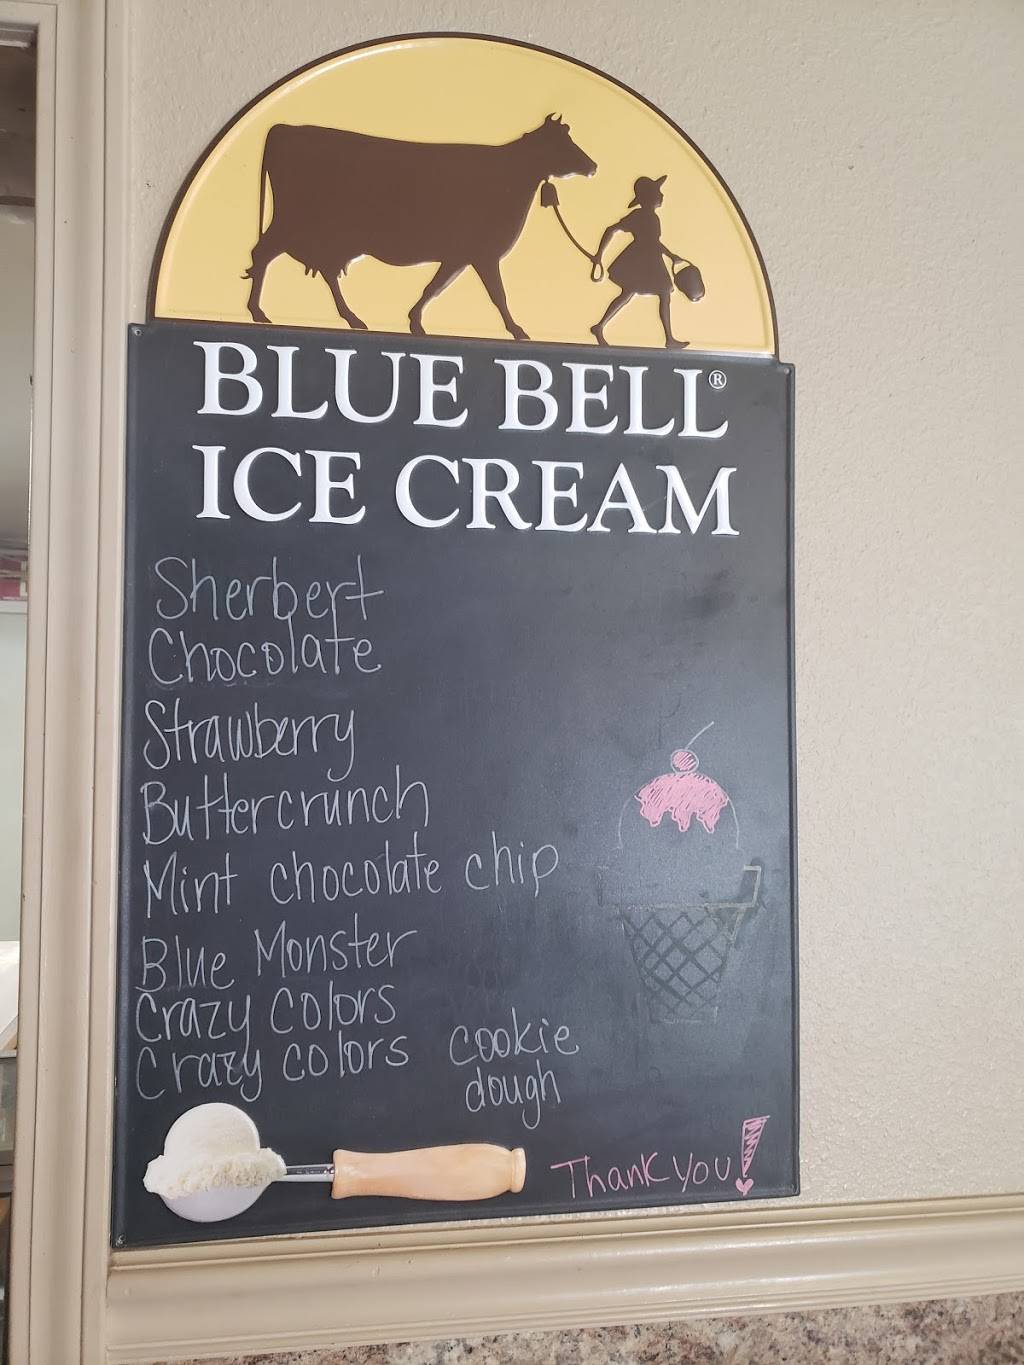 BLUE BELL®
ICE CREAM
Sherbert
Chocolate
Strawberry
Buttercrunch
Mint chocolate chip
Blue Monster
Crazy colors
Crazy colors cookie
dough
Thank you!